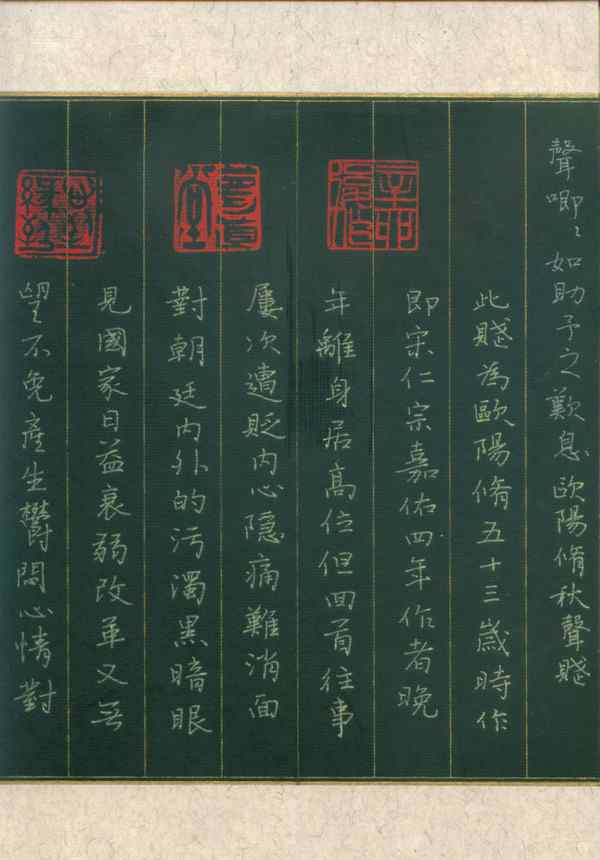 聲唧〻如助予之歎息歐陽脩秋聲賦
此賦為歐陽脩五十三歲時作
即宋仁宗嘉佑四年作者晚
年離身居高位但回首往事
屢次遭貶內心隱痛難消面
對朝廷內外的污濁黑暗眼
見國家日益衰弱改革又無
望不免產生鬱悶心情對